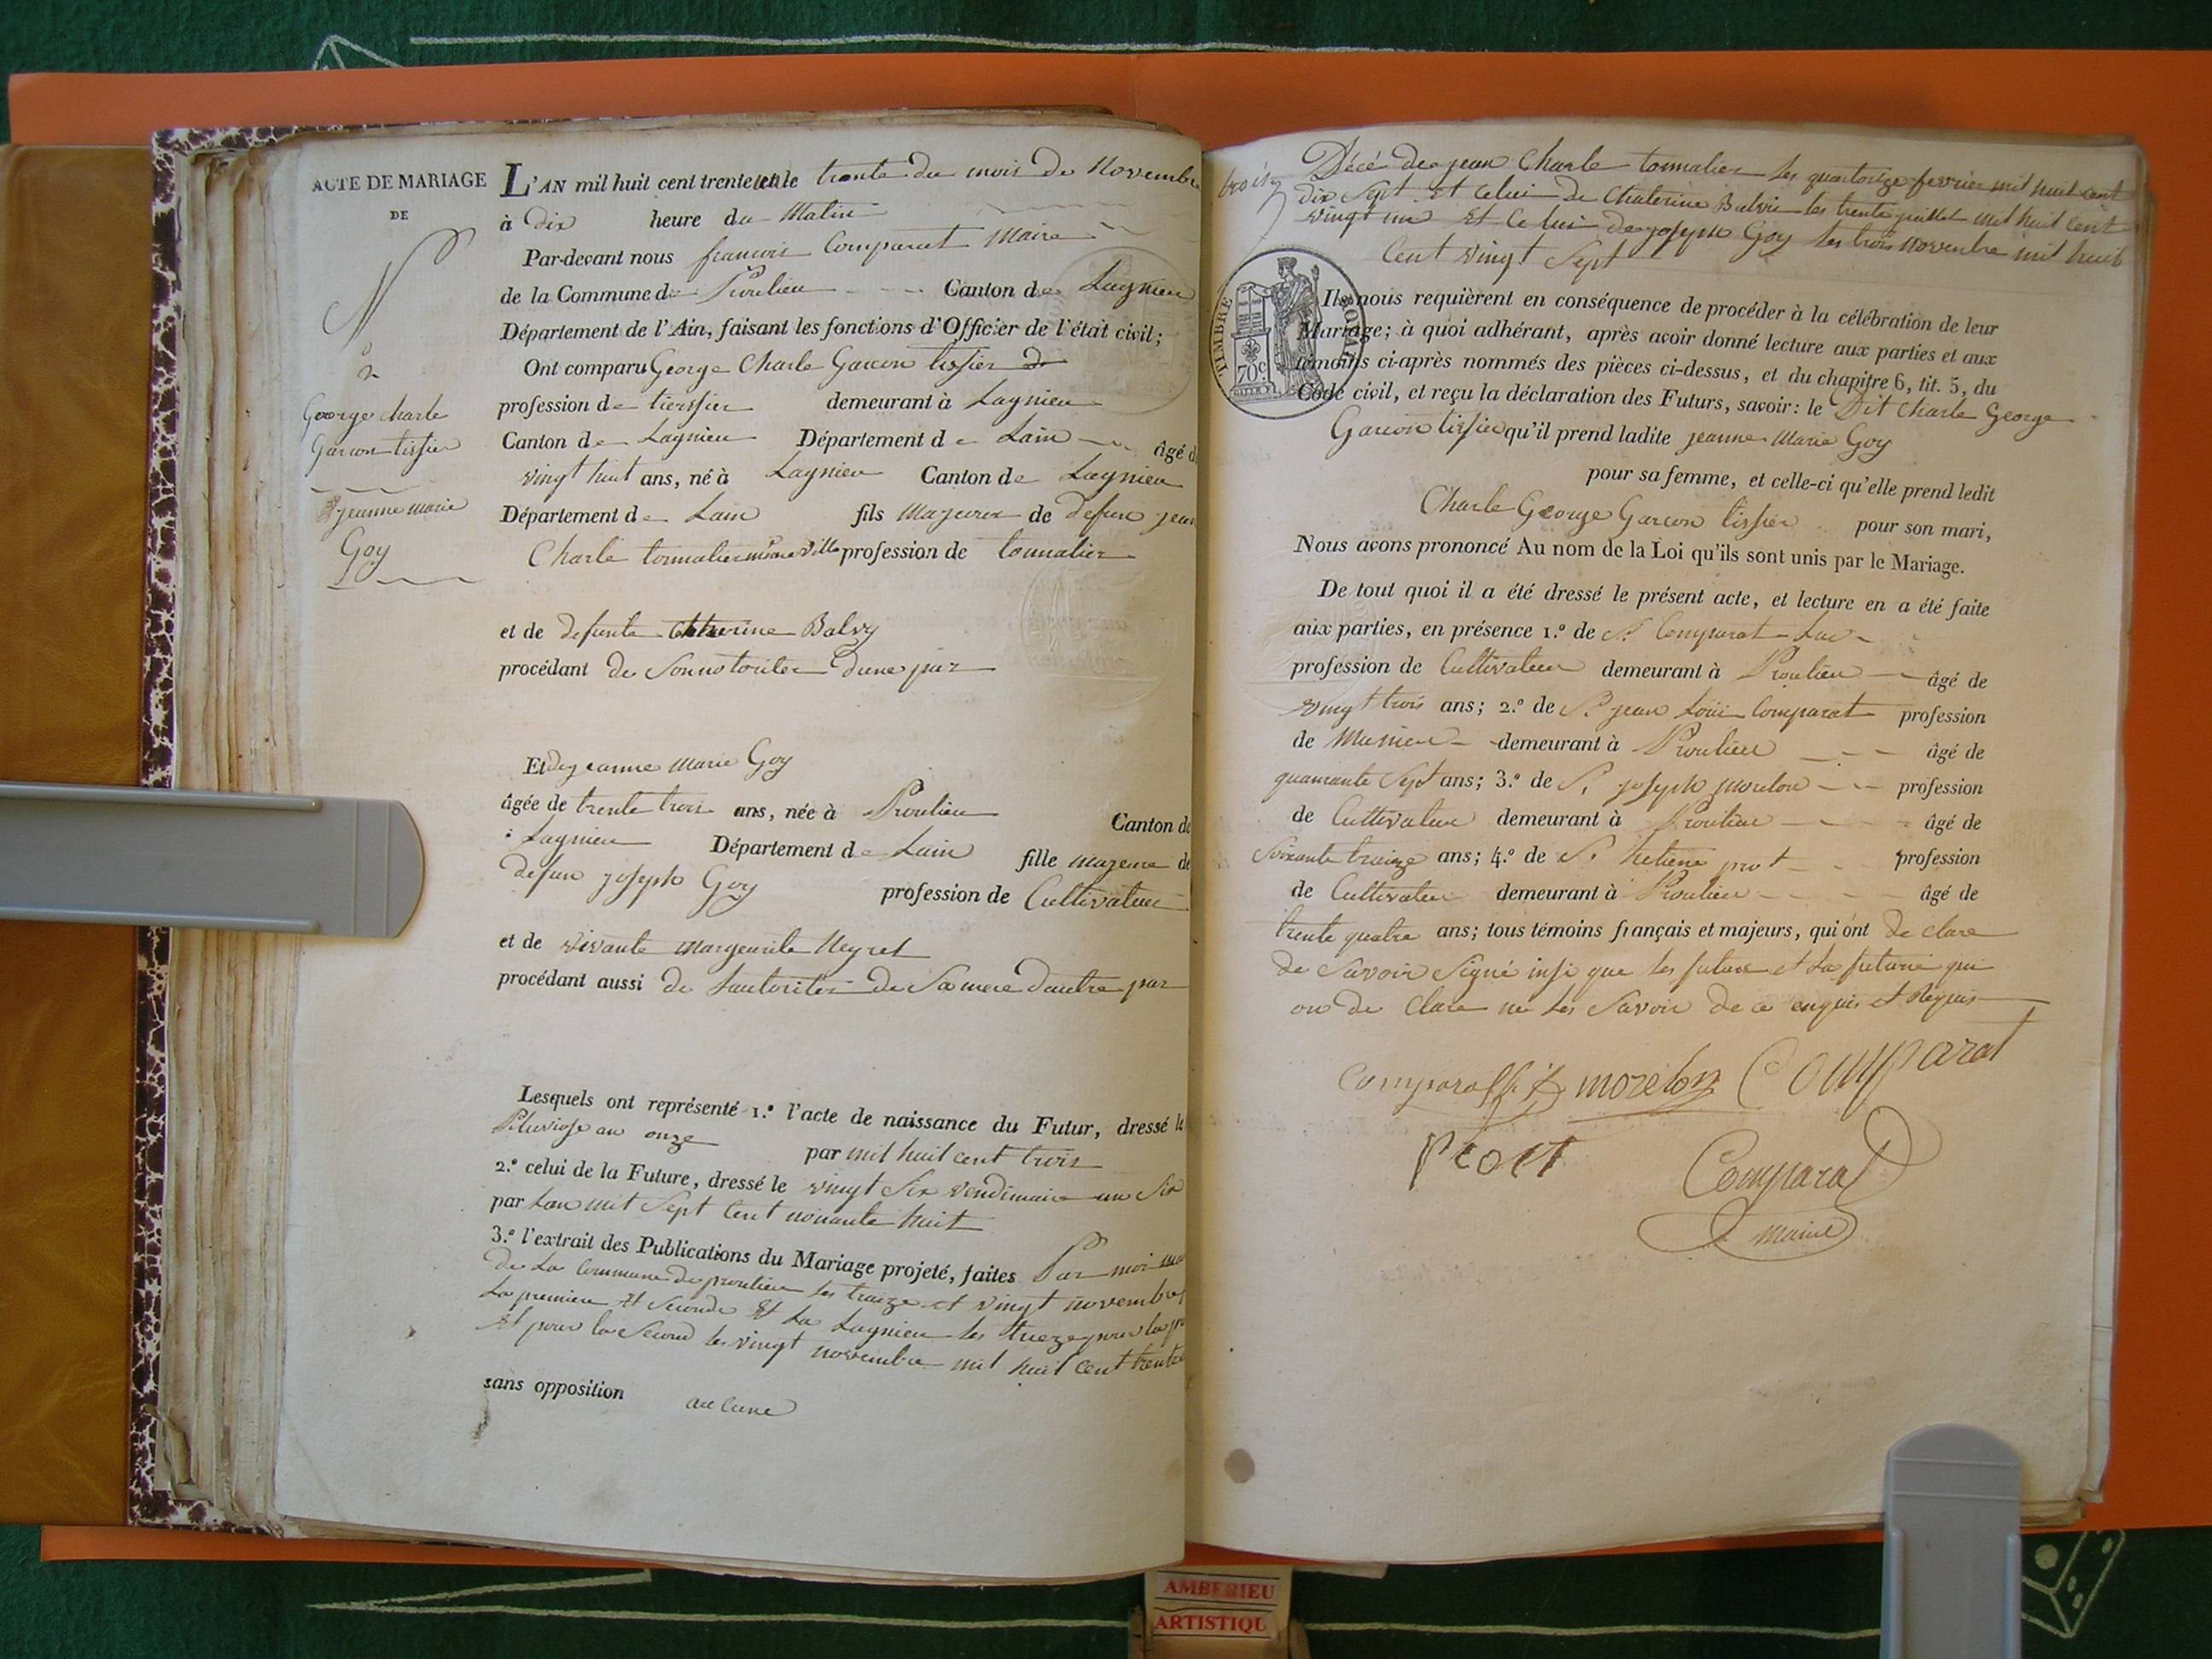 ACTE DE MARIAGE
DE
N.º 2
George charle
Garcon tissier
Et jeanne marie
Goy
L'AN mil huit cent trente et le trente du mois de Novembre
à dix heure du Matin
Par-devant nous francois Comparat Maire
de la Commune de Proulieu Canton de Lagnieu
Département de l'Ain, faisant les fonctions d'Officier de l'état civil;
Ont comparu George Charle Garcon tissier de
profession de tierssier demeurant à Lagnieu
Canton de Lagnieu Département de Lain âgé de
vingt huit ans, né à Lagnieu Canton de Lagnieu
Département de Lain fils majeure de defun jean
Charle tonnalier profession de tonnalier
et de defunte Catherine Balvy
procédant de Sonnotoriter dune par
Et de jeanne Marie Goy
âgée de trente trois ans, née à Proulieu Canton de
Lagnieu Département de Lain fille mageure de
defun joseph Goy profession de Cultivateur
et de vivante margeurite Neyret
procédant aussi de Lautoriter de Sa mere dautre par
Lesquels ont représenté 1.º l'acte de naissance du Futur, dressé le
Pluviose an onze par mil huit cent trois
2.º celui de la Future, dressé le vingt Six vendimaire an Six
par Lan mil Sept Cent nonante huit
3.º l'extrait des Publications du Mariage projeté, faites Par moi
de La Commune de proulieu les traize et vingt novembre
La premiere Et Seconde Et La Lagnieu les treze pour la
Et pour la Second les vingt novembre mil huit Cent trente
sans opposition aucune
trois
Décé de jean Charle tonnalier les quatorize fevrier mil huit cent
dix Sept Et Celui de Chaterine Balvie les trente juillet mil huit Cent
vingt un Et Celui de joseph Goy les trois novembre mil huit
Cent vingt Sept
TIMBRE ROYAL
70c
Ils nous requièrent en conséquence de procéder à la célébration de leur
Mariage; à quoi adhérant, après avoir donné lecture aux parties et aux
témoins ci-après nommés des pièces ci-dessus, et du chapitre 6, tit. 5, du
Code civil, et reçu la déclaration des Futurs, savoir: le Dit Charle George
Garcon tissier qu'il prend ladite jeanne Marie Goy
pour sa femme, et celle-ci qu'elle prend ledit
Charle George Garcon tissier pour son mari,
Nous avons prononcé Au nom de la Loi qu'ils sont unis par le Mariage.
De tout quoi il a été dressé le présent acte, et lecture en a été faite
aux parties, en présence 1.º de S.r Comparat Luc
profession de Cultivateur demeurant à Proulieu âgé de
vingt trois ans; 2.º de S.r jean Loui Comparat profession
de Munieu demeurant à Proulieu âgé de
quarante Sept ans; 3.º de S.r joseph morelon profession
de Cultivateur demeurant à Proulieu âgé de
Soixante traize ans; 4.º de S.r prot profession
de Cultivateur demeurant à Proulieu âgé de
trente quatre ans; tous témoins français et majeurs, qui ont de clare
de Savoir Signé insi que les future et La future qui
on de Clare ne les Savoir de ce enquis et Requis
Comparat fils morelon Comparat
Prost
Comparat
maire
AMBERIEU
ARTISTIQU